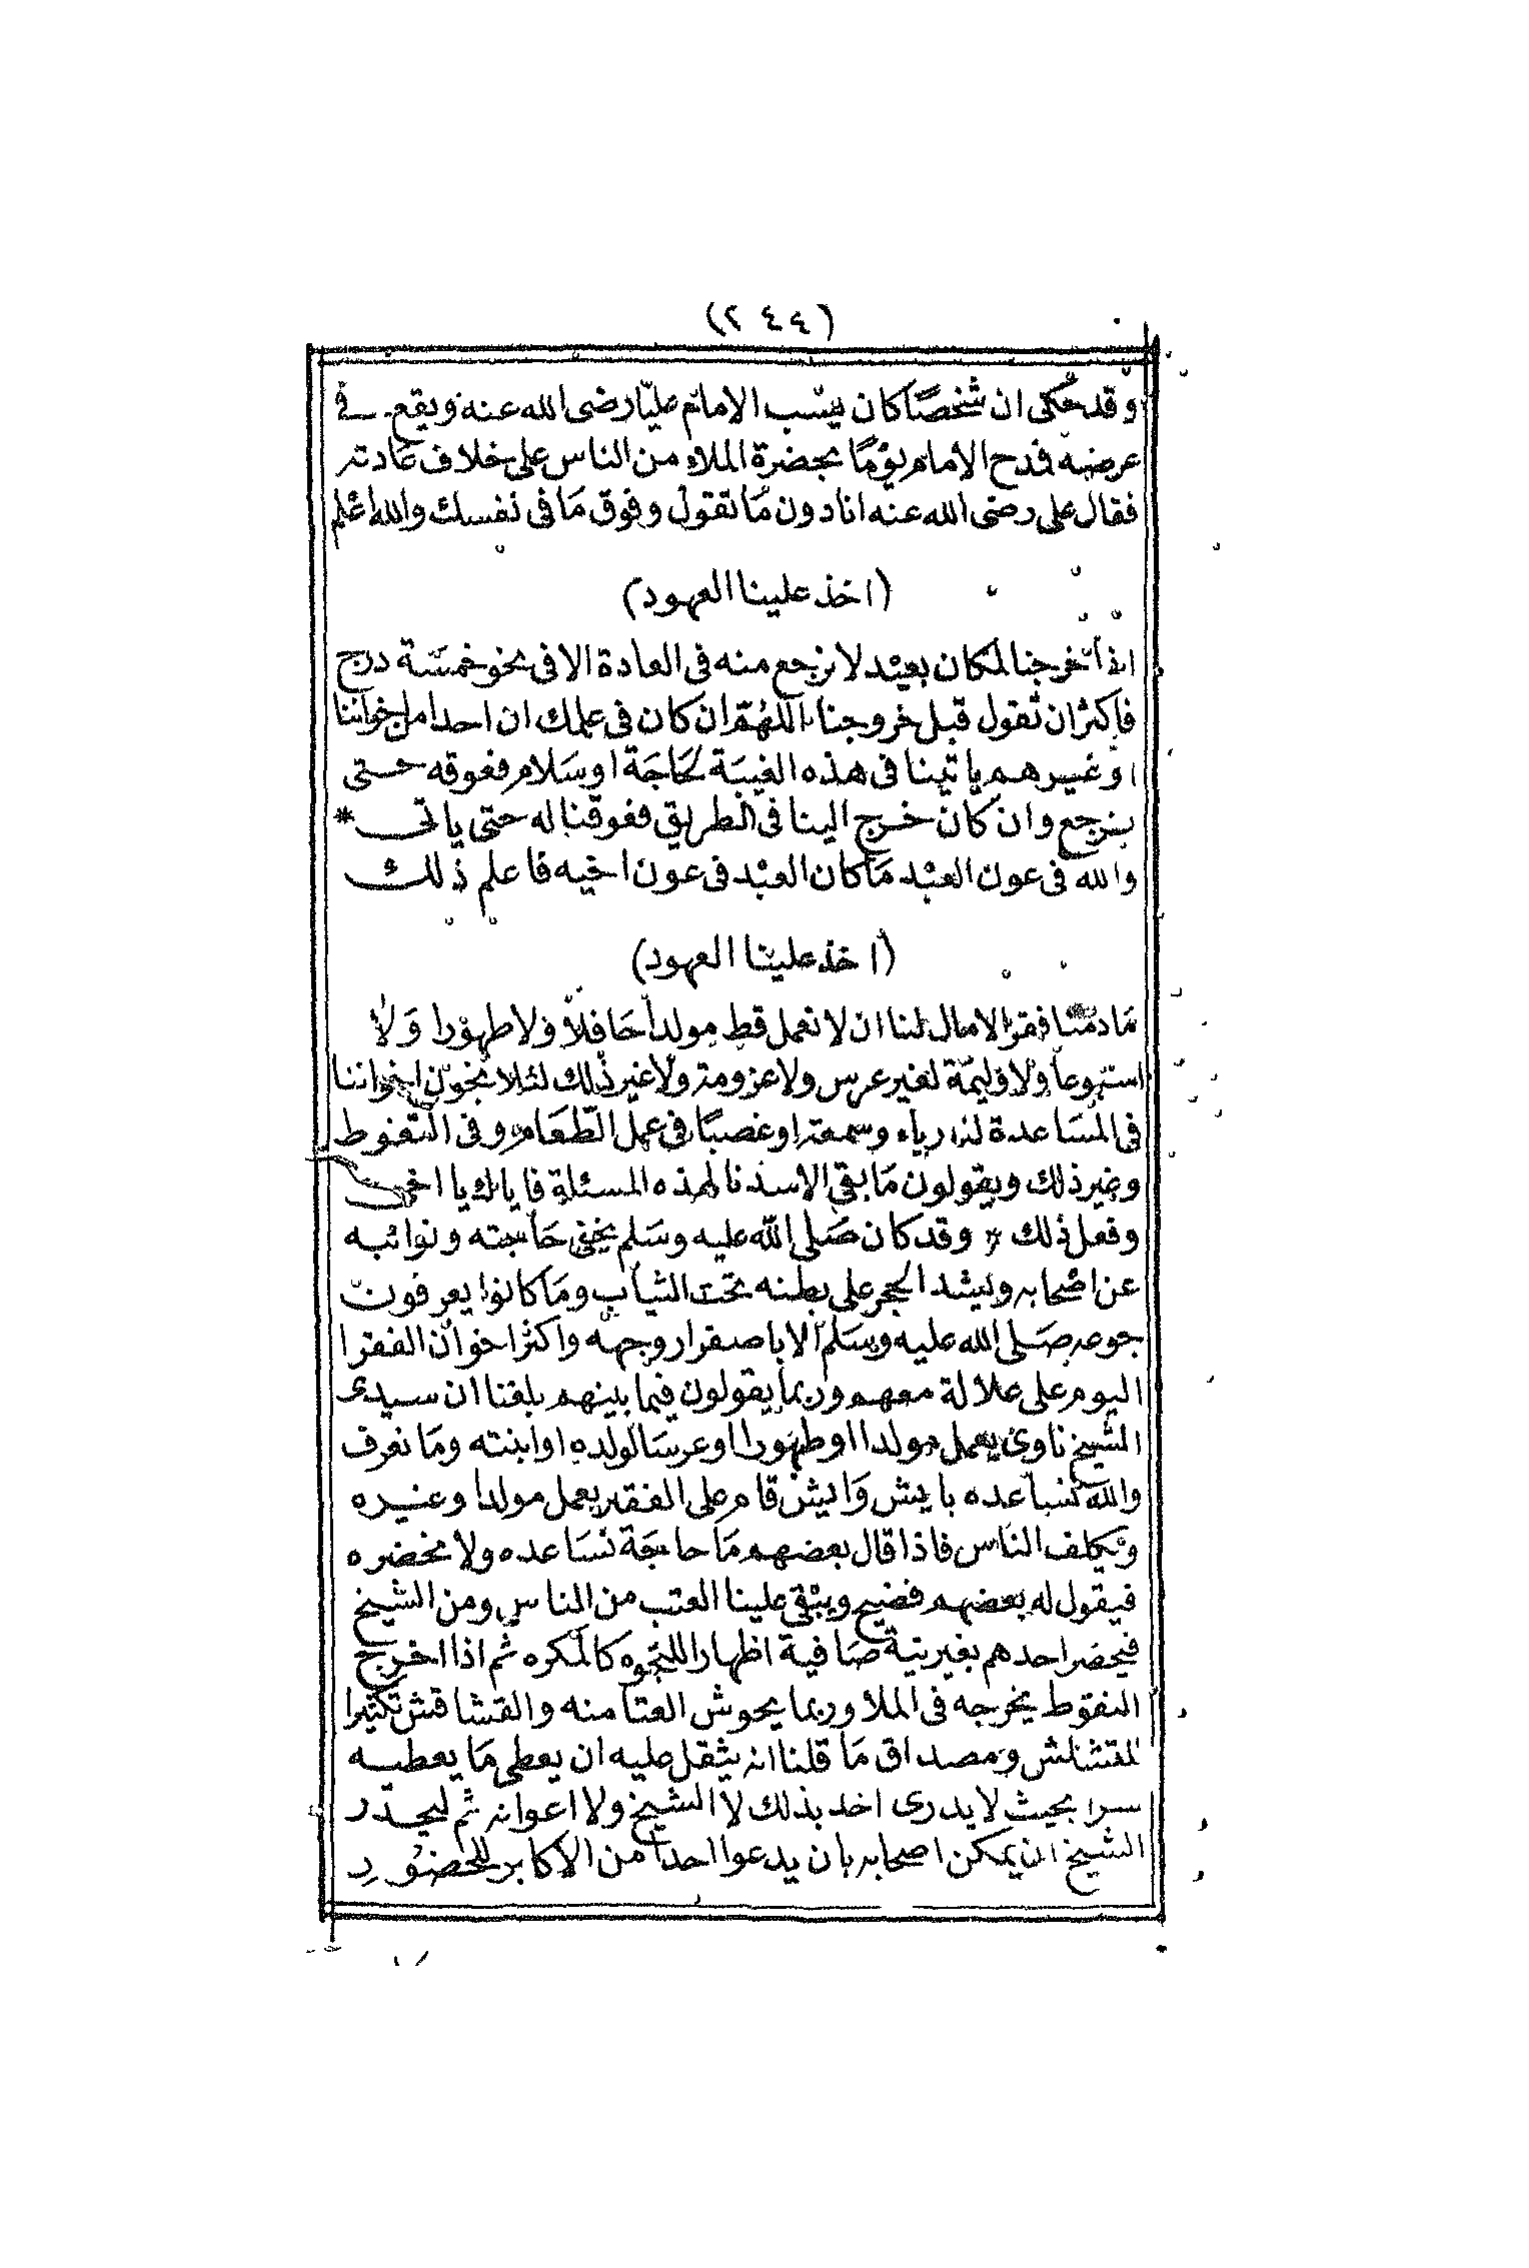 (٢٤٤)
وقد حكى ان شخصًا كان يسّب الامام عليّا رضى الله عنه ويقع فى
عرضه فمدح الامام يوْمًا بحضرة الملاء من الناس على خلاف عادته
فقال على رضى الله عنه انا دون مَا تقول وفوق مَا فى نفسك والله اعْلم
(اخذ علينا العهود)
اذا خرجنا لمكان بعيْد لا نرجع منه فى العادة الا فى نحو خمسَة درج
فاكثر ان نقول قبل خروجنا اللهُمّ ان كان فى علمك ان احدا من اخواننا
او غيرهم ياتينا فى هذه الغيبَة لحَاجَة او سَلام فعوقه حتى
نرجع وان كان خرج الينا فى الطريق فعوقنا له حتى ياتى *
والله فى عون العبْد مَا كان العبْد فى عون اخيه فاعلم ذلك
(اخذ علينا العهود)
مَا دمْنا فقرا لامال لنا ان لا نعمل قط مولداً حَافِلاً وَلا طهوْرا وَلاَ
اسبوعاً ولا وَليمَة لغير عرس ولا عزومة ولا غير ذلك لئلا نحوج اخواننا
فى المسَاعدة لنا رياء وسمعة او غصبًا فى عمل الطّعَام وفى النّقوط
وغير ذلك ويقولون مَا بقى الا سدنا لهذه المسئلة فاياك يا اخى
وفعل ذلك * وقد كان صَلى الله عليه وسَلم يخفى حَاجته ونوائبه
عن اصْحابه ويشد الحجر على بطنه تحت الثياب ومَا كانوا يعرفون
جوعه صَلى الله عليه وسَلم الا باصفرار وجهه واكثر اخوان الفقرا
اليوم على علالة معهم وربما يقولون فيما بينهم بلغنا ان سيدى
الشيخ ناوى يعمل مولدا او طهورا او عرسَا لولده او ابنته ومَا نعرف
والله نساعده بايش وَايش قام على الفقير يعمل مولدا وغيره
ويكلف الناس فاذا قال بعضهم مَا حاجَة نسَاعده ولا نحضره
فيقول له بعضهم فضيح ويبْقى علينا العتب من الناس ومن الشيخ
فيحضر احدهم بغير نية صَافية اظهارا للتجوه كالمكره ثم اذا اخرج
النقوط يخرجه فى الملا وربما يحوش العتا منه والقشاقش تكثيرا
للقشاش ومصداق مَا قلنا انه يثقل عليه ان يعطى مَا يعطيه
سرا بحيث لا يدرى احد بذلك لا الشيخ ولا اعوانه ثم ليحذر
الشيخ ان يمكن اصحابه بان يدعوا احدا من الاكابر للحضور